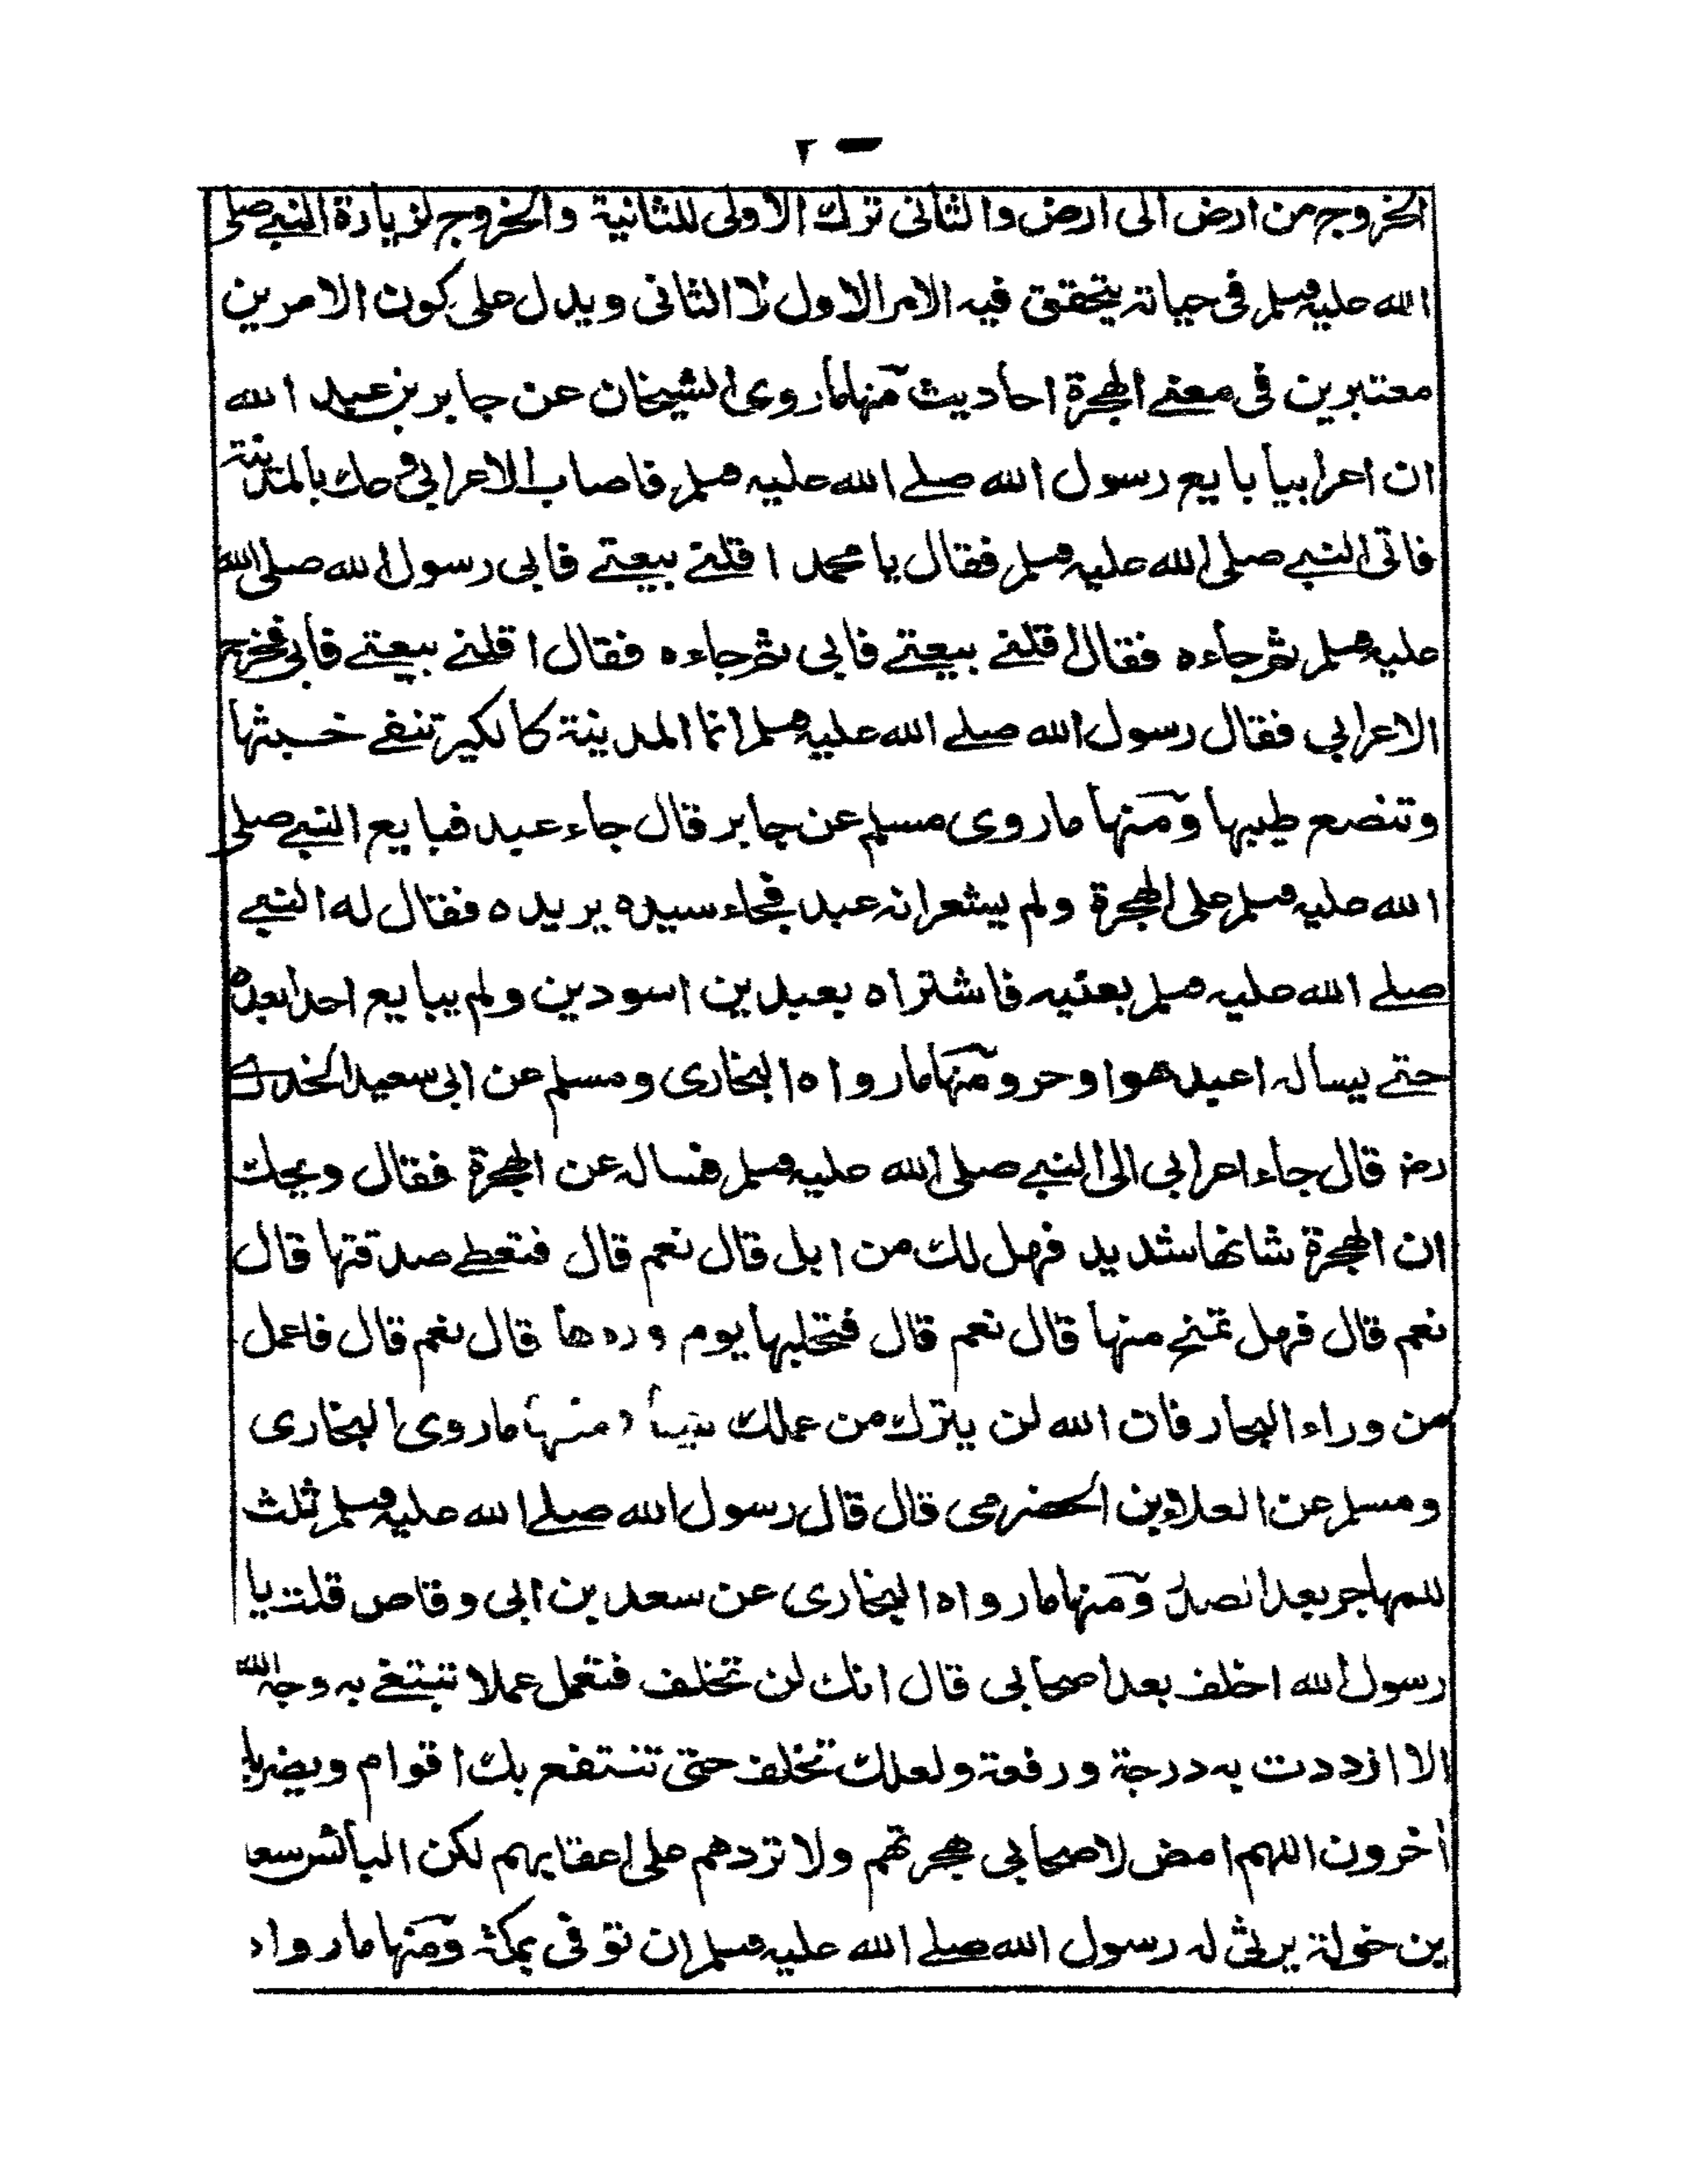 ٢
الخروج من ارض الى ارض والثانى ترك الاولى للثانية والخروج لزيارة النبي صلى
الله عليه وسلم فى حياته يتحقق فيه الامر الاول لا الثانى ويدل على كون الامرين
معتبرين فى معنے الهجرة احاديث منها ما روى الشيخان عن جابر بن عبد الله
ان اعرابيا بايع رسول الله صلے الله عليه وسلم فاصاب الاعرابى وعك بالمدينة
فاتى النبي صلى الله عليه وسلم فقال يا محمد اقلنے بيعتے فابى رسول الله صلى الله
عليه وسلم ثم جاءه فقال اقلنے بيعتے فابى ثم جاءه فقال اقلنے بيعتے فابى فخرج
الاعرابى فقال رسول الله صلے الله عليه وسلم انما المدينة كالكير تنفے خبثها
وتنصع طيبها ومنها ما روى مسلم عن جابر قال جاء عبد فبايع النبي صلى
الله عليه وسلم على الهجرة ولم يشعر انه عبد فجاء سيده يريده فقال له النبے
صلے الله عليه وسلم بعنيه فاشتراه بعبدين اسودين ولم يبايع احدا بعده
حتے يساله اعبد هو او حر ومنها ما رواه البخارى ومسلم عن ابى سعيد الخدرے
رض قال جاء اعرابى الى النبے صلى الله عليه وسلم فساله عن الهجرة فقال ويحك
ان الهجرة شانها شديد فهل لك من ابل قال نعم قال فتعطے صدقتها قال
نعم قال فهل تمنح منها قال نعم قال فتحلبها يوم وردها قال نعم قال فاعمل
من وراء البحار فان الله لن يترك من عملك شيئا ومنها ما روى البخارى
ومسلم عن العلاء بن الحضرمى قال قال رسول الله صلے الله عليه وسلم ثلث
للمهاجر بعد الصدر ومنها ما رواه البخارى عن سعد بن ابى وقاص قلت يا
رسول الله اخلف بعد اصحابى قال انك لن تخلف فتعمل عملا تبتغے به وجه الله
الا ازددت به درجة ورفعة ولعلك تخلف حتى تنتفع بك اقوام ويضر بك
أخرون اللهم امض لاصحابى هجرتهم ولا تردهم على اعقابهم لكن البائس سعد
بن خولة يرثى له رسول الله صلے الله عليه وسلم ان توفى بمكة ومنها ما رواه